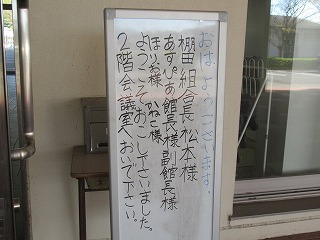 おはようございます。
棚田組合長 松本様
あすぴあ館長様 副館長様
ほりお様 かねこ様
ようこそおこし下さいました。
2階会議室へおいで下さい。